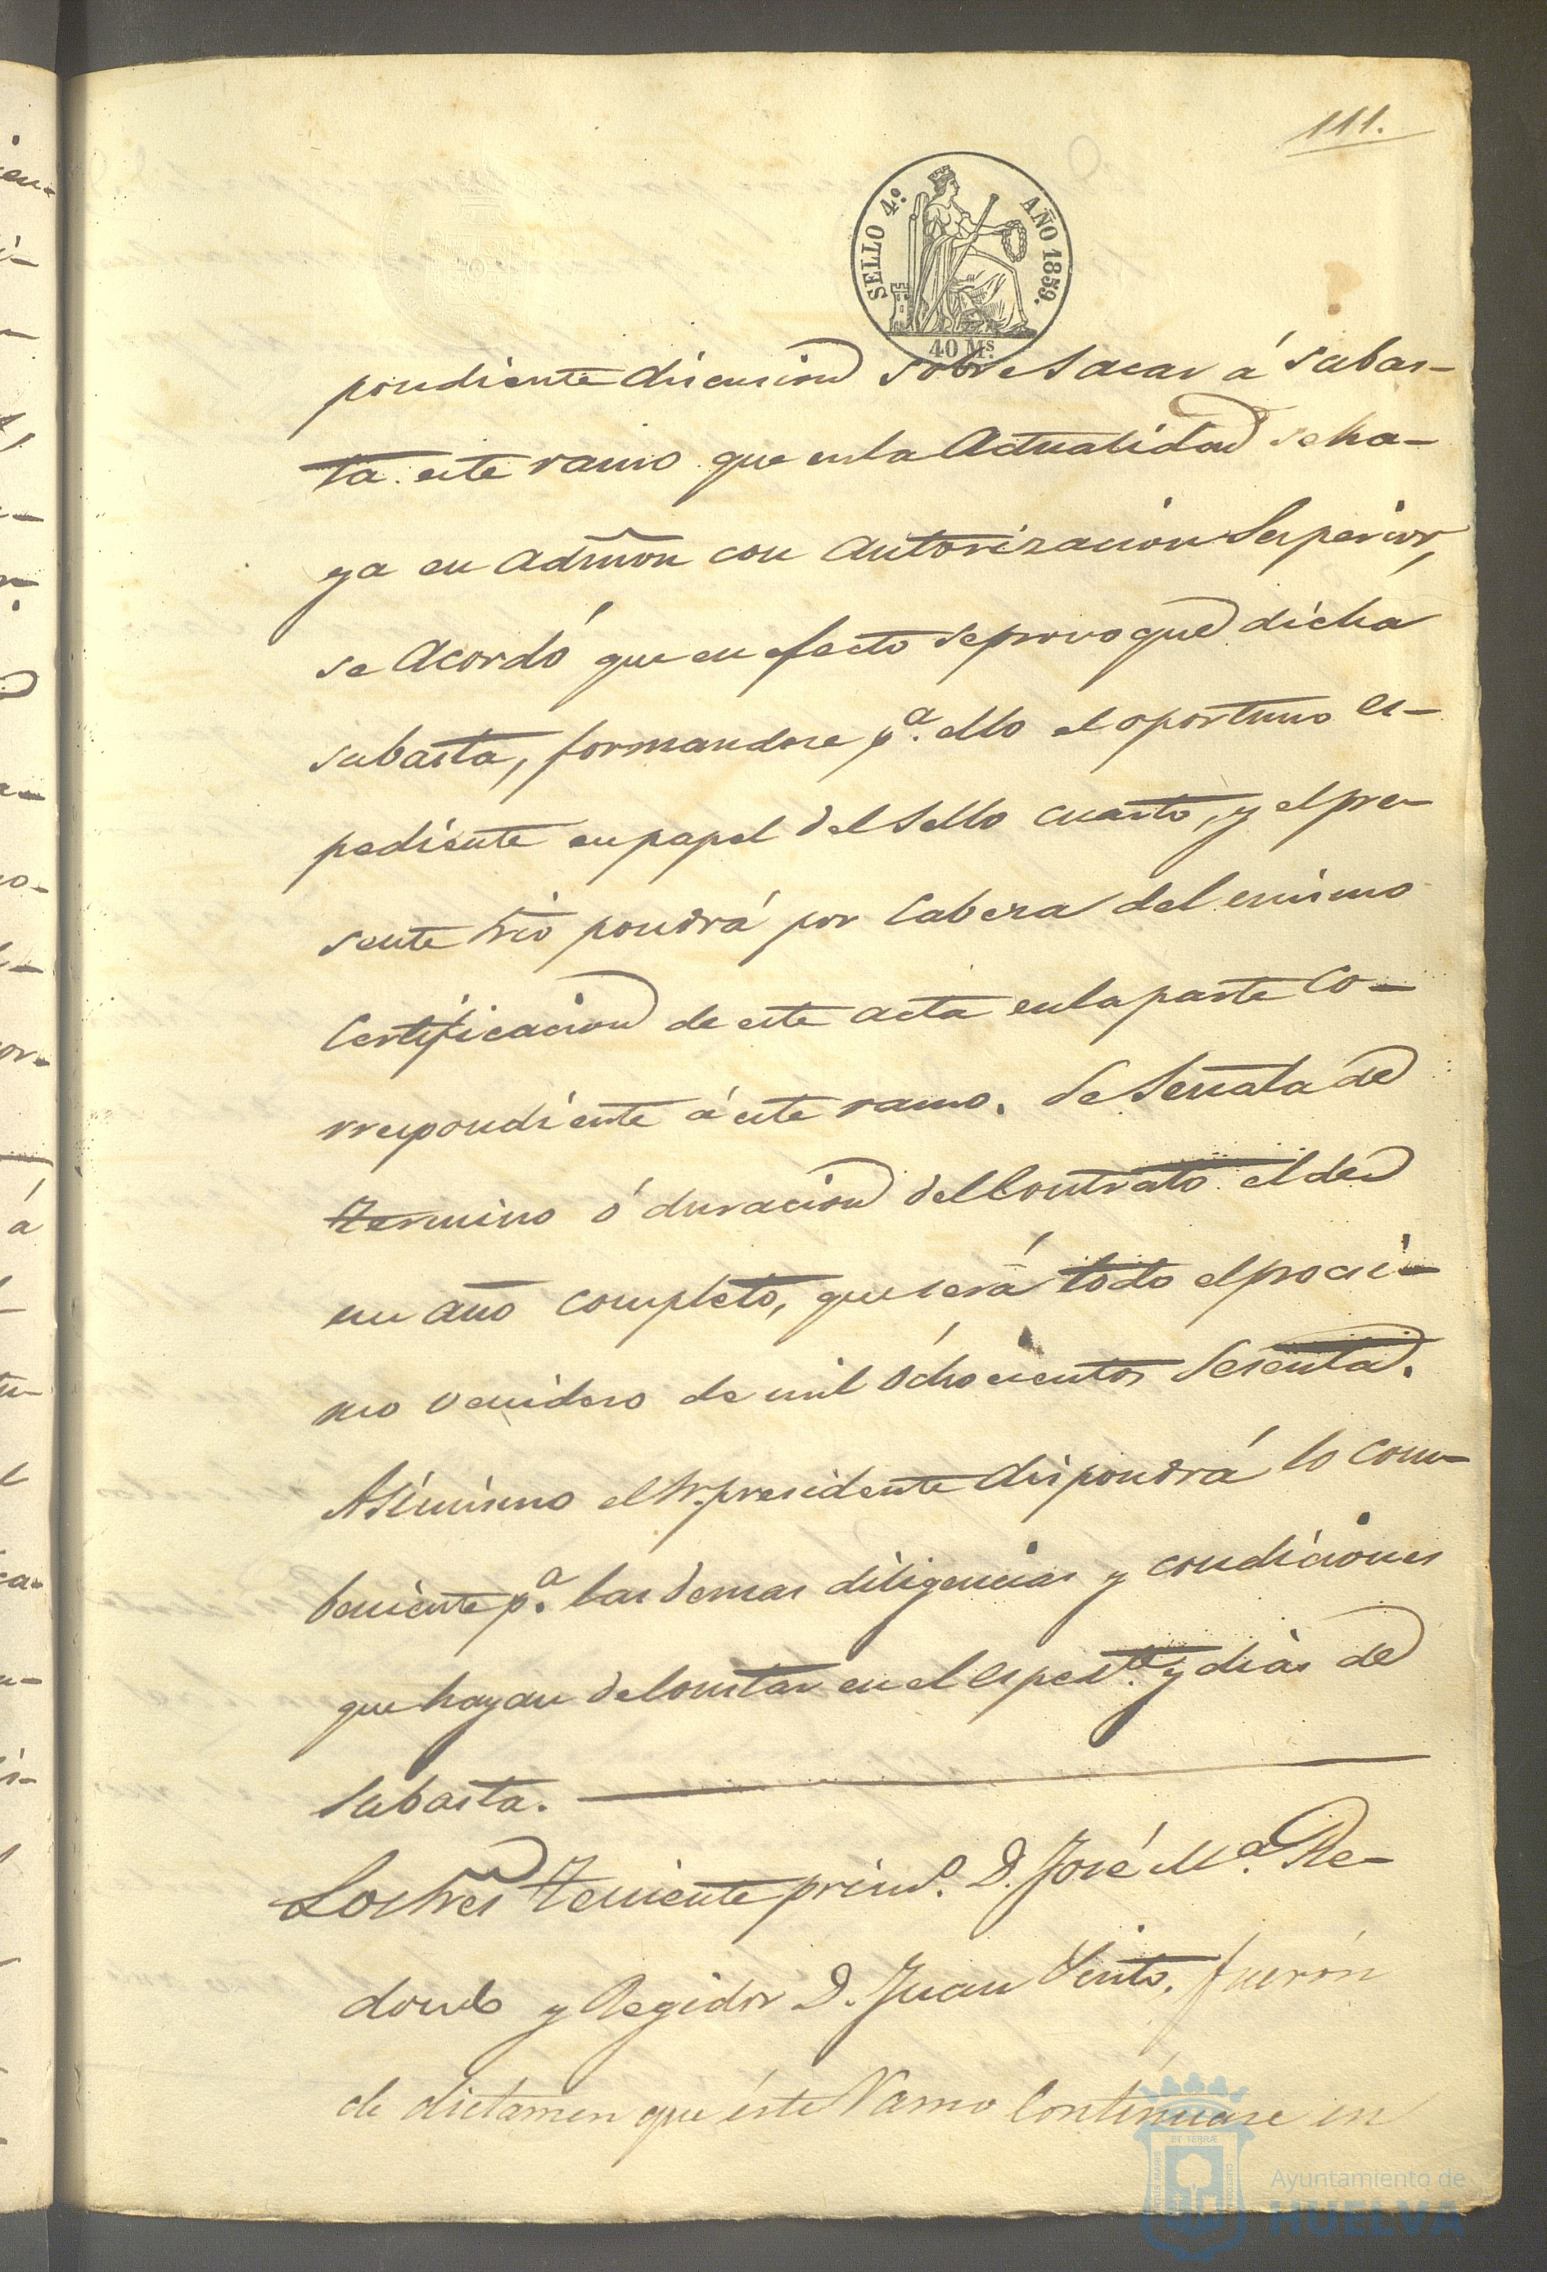 111.
SELLO 4º AÑO 1859.
40 Ms.
pondiente discusion sobre sacar á subas-
ta este ramo que en la Actualidad se ha-
ya en Admon con Autorizacion Superior,
se Acordó que en efecto se provoque dicha
subasta, formandose pª. ello el oportuno es-
pediente en papel del sello cuarto, y el pre-
sente Srio pondrá por Cabeza del mismo
Certificacion de este acta en la parte co-
rrespondiente á este ramo. Se Señala de
termino ó duracion del Contrato el de
un año completo, que será todo el procsi-
mo venidero de mil ochocientos Sesenta.
Asimismo el Sr. presidente dispondrá lo com-
beniente pª. las demas diligencias y condiciones
que hayan de constar en el espedte. y dias de
Subasta.
Los Sres Teniente primº. D. José Mª. Re-
dondo y Regidor D. Juan Vento, fuerón
de dictamen que éste Ramo Contínuase en
ET TERRÆ
Ayuntamiento de
HUELVA